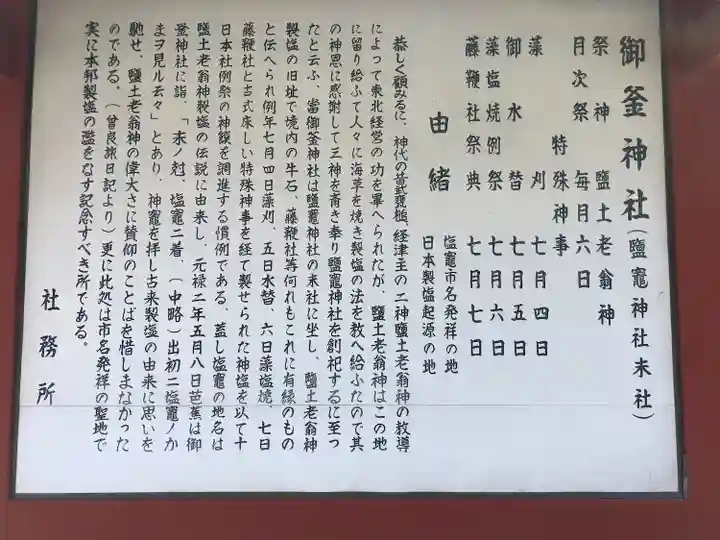 御釜神社(鹽竈神社末社)
祭神 鹽土老翁神
月次祭 毎月六日
特殊神事
藻刈 七月四日
御水替 七月五日
藻塩焼例祭 七月六日
藤鞭社祭典 七月七日
由緒
塩竈市名発祥の地
日本製塩起源の地
恭しく顧みるに、神代の昔武甕槌、経津主の二神鹽土老翁神の教導
によって東北経営の功を畢へられたが、鹽土老翁神はこの地
に留り給ふて人々に海草を焼き製塩の法を教へ給ふたので其
の神恩に感謝して三神を斎き奉り鹽竈神社を創祀するに至つ
たと云ふ、當御釜神社は鹽竈神社の末社に坐し、鹽土老翁神
製塩の旧址で境内の牛石、藤鞭社等何れもこれに有縁のもの
と伝へられ例年七月四日藻刈、五日水替、六日藻塩焼、七日
藤鞭社と古式床しい特殊神事を経て製せられた神塩を以て十
日本社例祭の神饌を調進する慣例である、蓋し塩竈の地名は
鹽土老翁神製塩の伝説に由来し、元禄二年五月八日芭蕉は御
釜神社に詣、「末ノ尅、塩竈ニ着、(中略)出初ニ塩竈ノか
まヲ見ル云々」とあり、神竈を拝し古来製塩の由来に思いを
馳せ、鹽土老翁神の偉大さに賛仰のことばを惜しまなかった
のである。(曽良旅日記より)更に此処は市名発祥の聖地で
実に本邦製塩の濫をなす記念すべき所である。
社務所